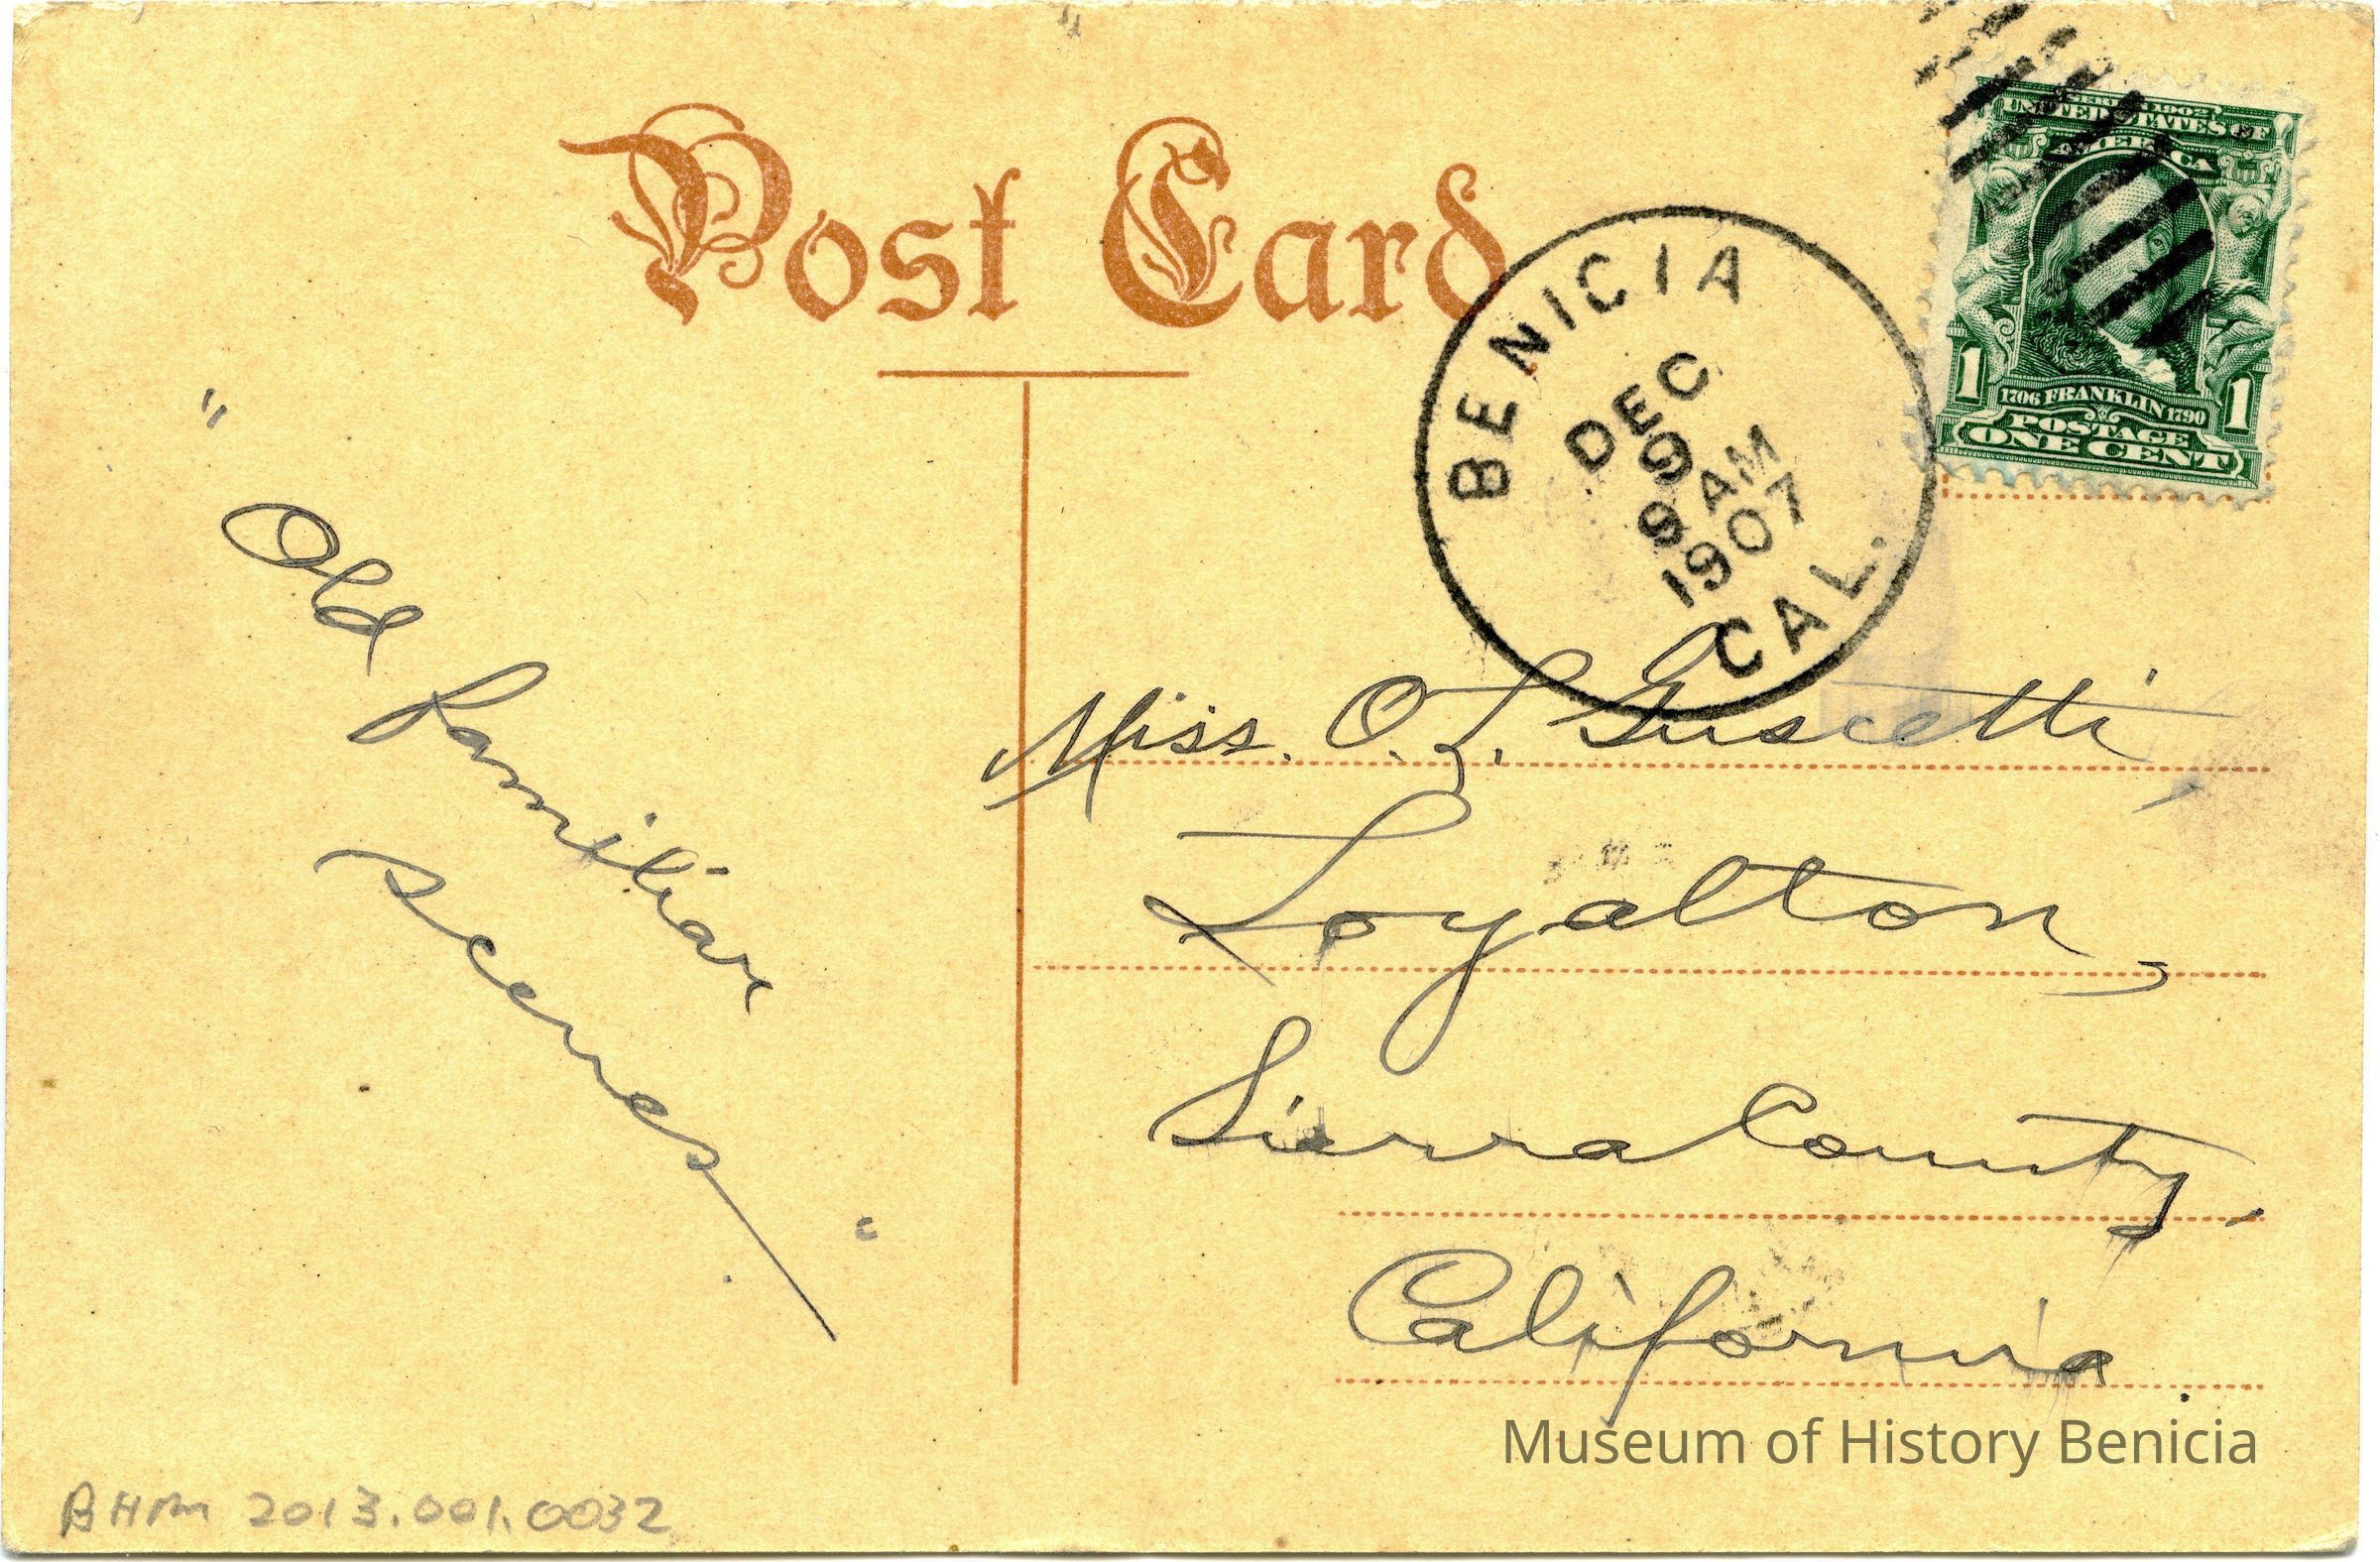 Post Card
BENICIA
DEC
9
9 AM
1907
CAL.
SERIES 1902
UNITED STATES OF
AMERICA
1706 FRANKLIN 1790
1 1
POSTAGE
ONE CENT
"Old familiar
scenes"
Miss. O. L. Guscetti,
Loyalton,
Sierra County,
California
Museum of History Benicia
BHM 2013.001.0032